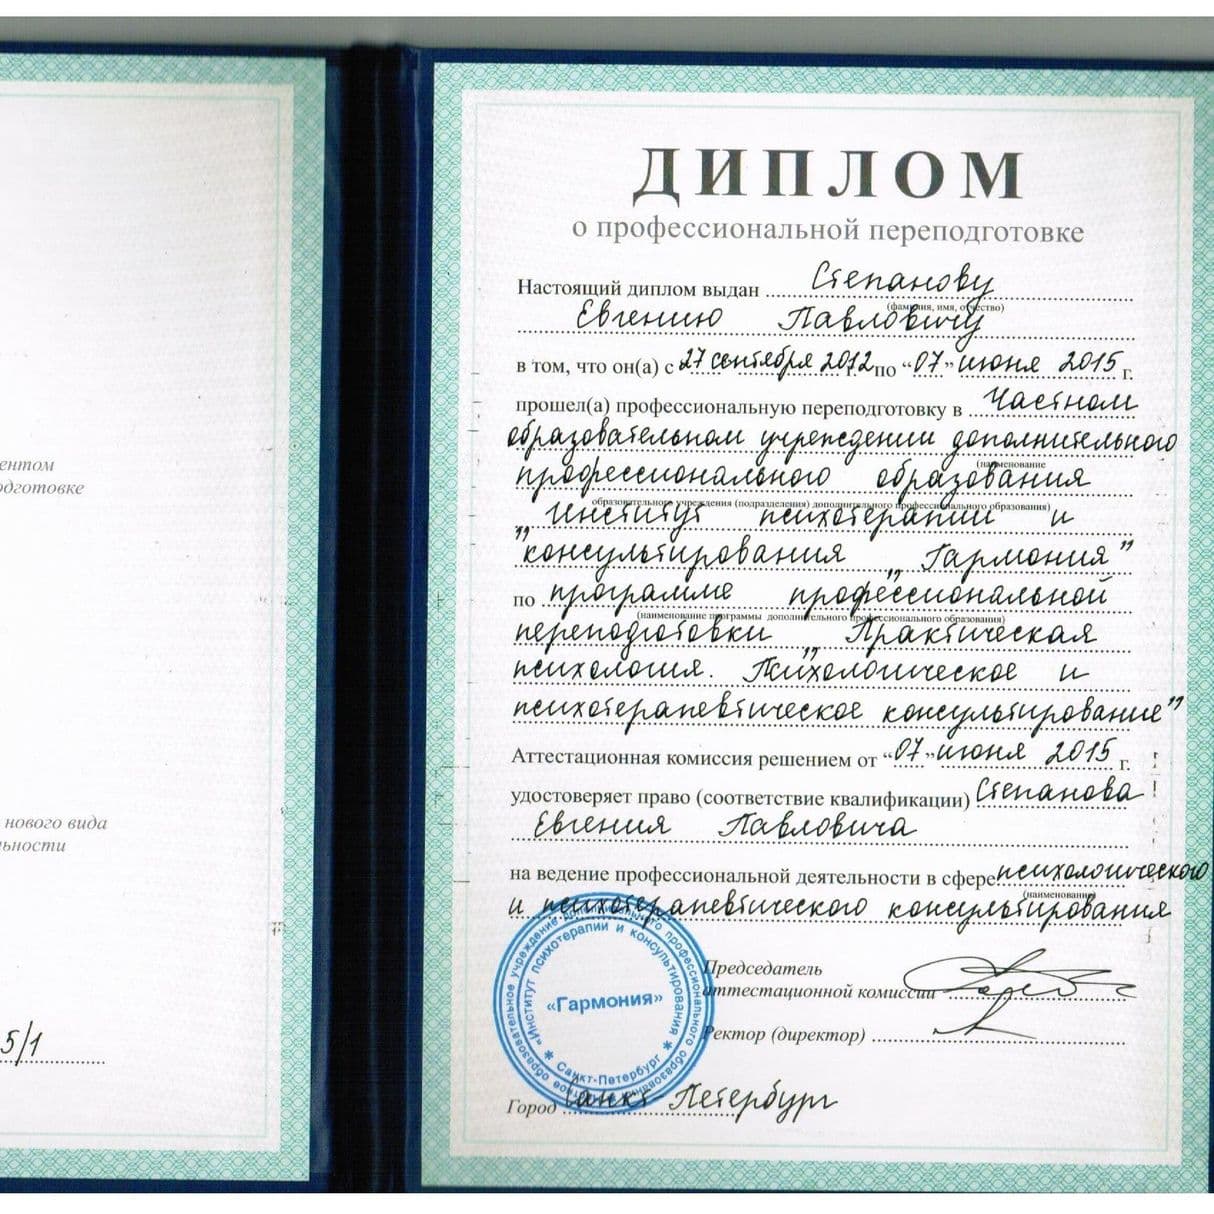 ентом
одготовке
нового вида
льности
5/1
ДИПЛОМ
о профессиональной переподготовке
Настоящий диплом выдан Степанову
(фамилия, имя, отчество)
Евгению Павловичу
в том, что он(а) с 27 сентября 2012 г. по “07” июня 2015 г.
прошел(а) профессиональную переподготовку в Частном
образовательном учреждении дополнительного
(наименование
профессионального образования
образовательного учреждения (подразделения) дополнительного профессионального образования)
„Институт психотерапии и
консультирования „Гармония”
по программе профессиональной
(наименование программы дополнительного профессионального образования)
переподготовки „Практическая
психология. Психологическое и
психотерапевтическое консультирование”
Аттестационная комиссия решением от “07” июня 2015 г.
удостоверяет право (соответствие квалификации) Степанова
Евгения Павловича
на ведение профессиональной деятельности в сфере психологического
(наименование)
и психотерапевтического консультирования
Председатель
аттестационной комиссии
Ректор (директор)
Город Санкт Петербург
образовательное учреждение дополнительного профессионального
«Институт психотерапии и консультирования
«Гармония»
Санкт-Петербург